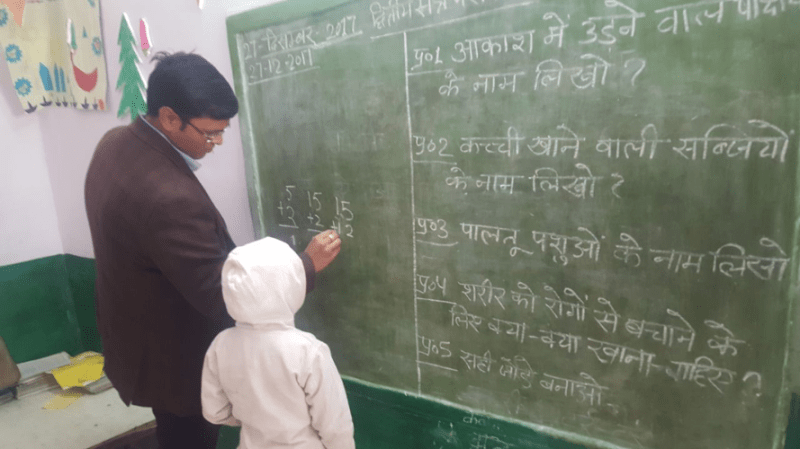 27-दिसम्बर-2017
27-12-2017
द्वितीय सत्र
प्र०1 आकाश में उड़ने वाले
के नाम लिखो ?
प्र०2 कच्ची खाने वाली सब्जियों
के नाम लिखो ?
प्र०3 पालतू पशुओं के नाम लिखो
प्र०4 शरीर को रोगों से बचाने के
लिए क्या-क्या खाना चाहिए ?
प्र०5 सही जोड़े बनाओ
5 15 15
+2 +2 2